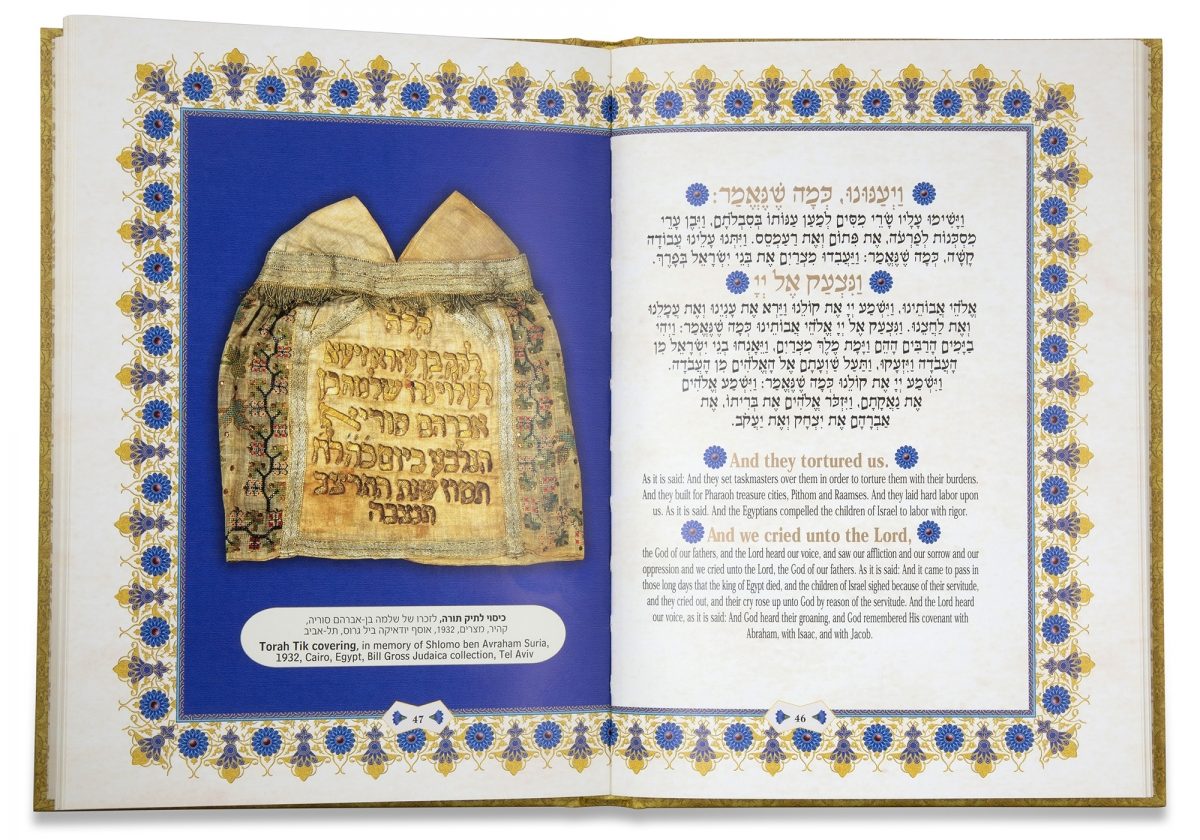 וַיְעַנּוּנוּ, כְּמָה שֶׁנֶּאֱמַר:
וַיָּשִׂימוּ עָלָיו שָׂרֵי מִסִּים לְמַעַן עַנּוֹתוֹ בְּסִבְלֹתָם, וַיִּבֶן עָרֵי
מִסְכְּנוֹת לְפַרְעֹה, אֶת פִּתוֹם וְאֶת רַעַמְסֵס. וַיִּתְּנוּ עָלֵינוּ עֲבוֹדָה
קָשָׁה, כְּמָה שֶׁנֶּאֱמַר: וַיַּעֲבִדוּ מִצְרַיִם אֶת בְּנֵי יִשְׂרָאֵל בְּפָרֶךְ.
וַנִּצְעַק אֶל יְיָ
אֱלֹהֵי אֲבוֹתֵינוּ, וַיִּשְׁמַע יְיָ אֶת קוֹלֵנוּ וַיַּרְא אֶת עָנְיֵנוּ וְאֶת עֲמָלֵנוּ
וְאֶת לַחֲצֵנוּ. וַנִּצְעַק אֶל יְיָ אֱלֹהֵי אֲבוֹתֵינוּ כְּמָה שֶׁנֶּאֱמַר: וַיְהִי
בַיָּמִים הָרַבִּים הָהֵם וַיָּמָת מֶלֶךְ מִצְרַיִם, וַיֵּאָנְחוּ בְנֵי יִשְׂרָאֵל מִן
הָעֲבֹדָה וַיִּזְעָקוּ, וַתַּעַל שַׁוְעָתָם אֶל הָאֱלֹהִים מִן הָעֲבֹדָה.
וַיִּשְׁמַע יְיָ אֶת קוֹלֵנוּ כְּמָה שֶׁנֶּאֱמַר: וַיִּשְׁמַע אֱלֹהִים
אֶת נַאֲקָתָם, וַיִּזְכֹּר אֱלֹהִים אֶת בְּרִיתוֹ, אֶת
אַבְרָהָם אֶת יִצְחָק וְאֶת יַעֲקֹב.
And they tortured us.
As it is said: And they set taskmasters over them in order to torture them with their burdens.
And they built for Pharaoh treasure cities, Pithom and Raamses. And they laid hard labor upon
us. As it is said. And the Egyptians compelled the children of Israel to labor with rigor.
And we cried unto the Lord,
the God of our fathers, and the Lord heard our voice, and saw our affliction and our sorrow and our
oppression and we cried unto the Lord, the God of our fathers. As it is said: And it came to pass in
those long days that the king of Egypt died, and the children of Israel sighed because of their servitude,
and they cried out, and their cry rose up unto God by reason of the servitude. And the Lord heard
our voice, as it is said: And God heard their groaning, and God remembered His covenant with
Abraham, with Isaac, and with Jacob.
46
שלמה בן
אברהם סוריא
ביום
תמוז שנת התרצב
תנצבה
כיסוי לתיק תורה, לזכרו של שלמה בן-אברהם סוריה,
קהיר, מצרים, 1932, אוסף יודאיקה ביל גרוס, תל-אביב
Torah Tik covering, in memory of Shlomo ben Avraham Suria,
1932, Cairo, Egypt, Bill Gross Judaica collection, Tel Aviv
47